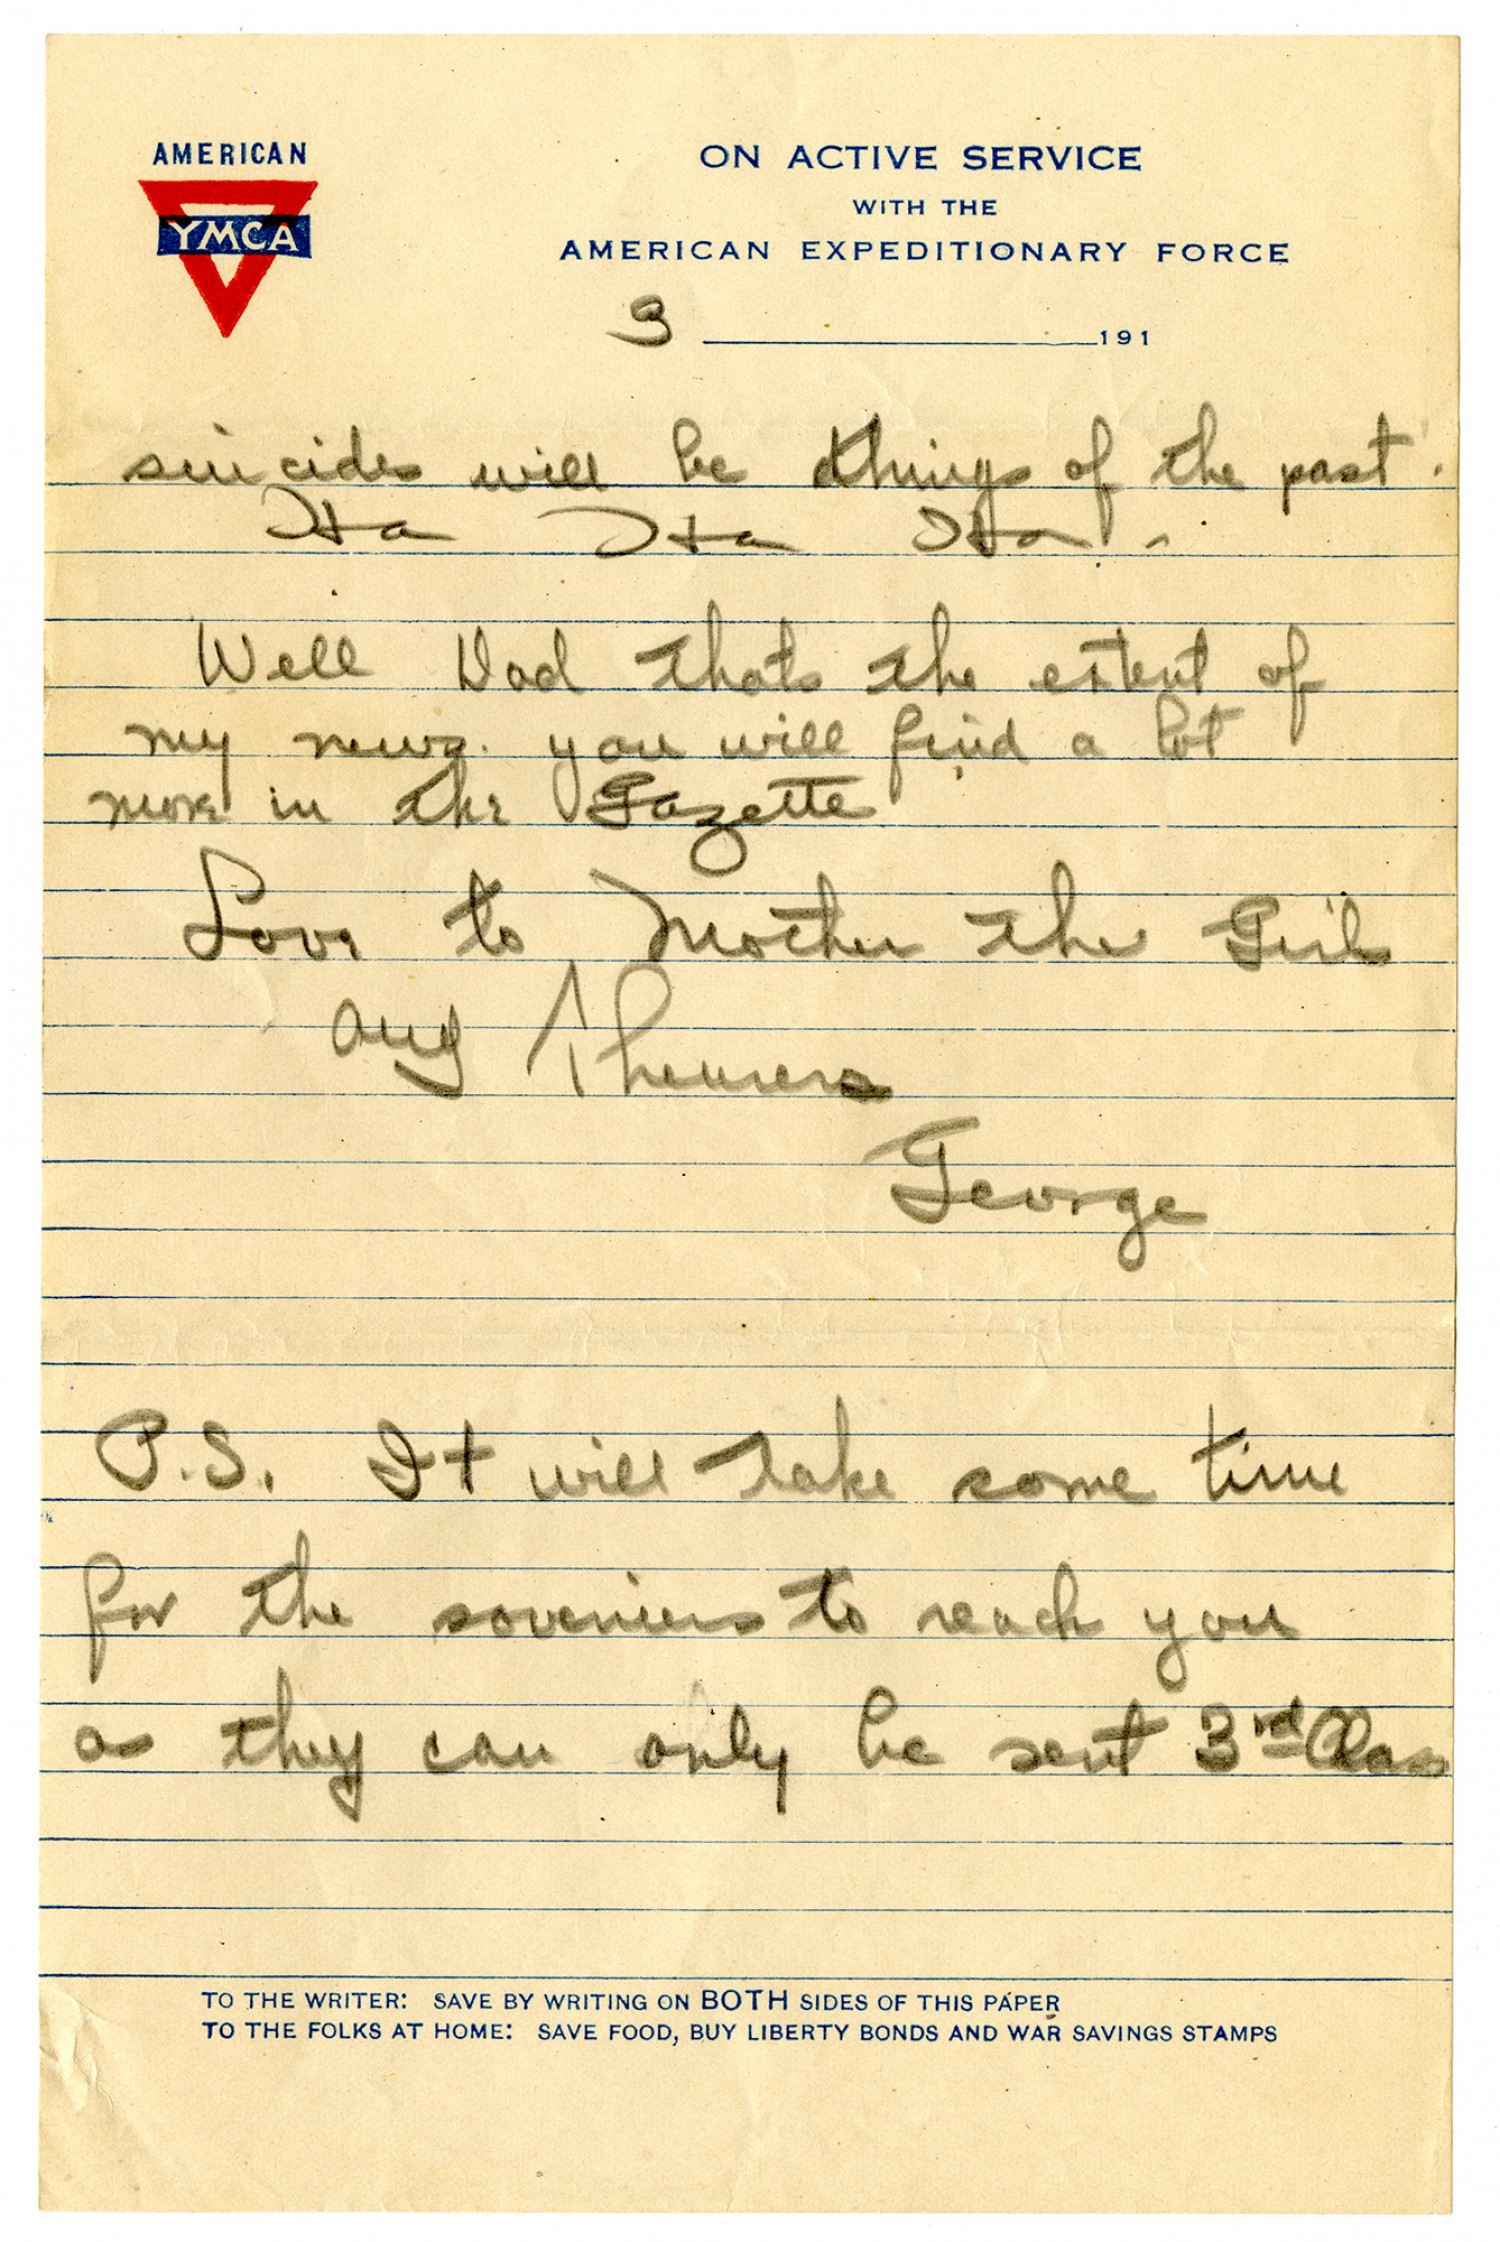 AMERICAN
YMCA
ON ACTIVE SERVICE
WITH THE
AMERICAN EXPEDITIONARY FORCE
3 191
suicides will be things of the past.
Ha Ha Ha! -
Well Dad thats the extent of
my news. you will find a lot
more in the Gazette
Love to Mother the Girls
and
George
P.S. It will take some time
for the soveniers to reach you
as they can only be sent 3rd Class
TO THE WRITER: SAVE BY WRITING ON BOTH SIDES OF THIS PAPER
TO THE FOLKS AT HOME: SAVE FOOD, BUY LIBERTY BONDS AND WAR SAVINGS STAMPS